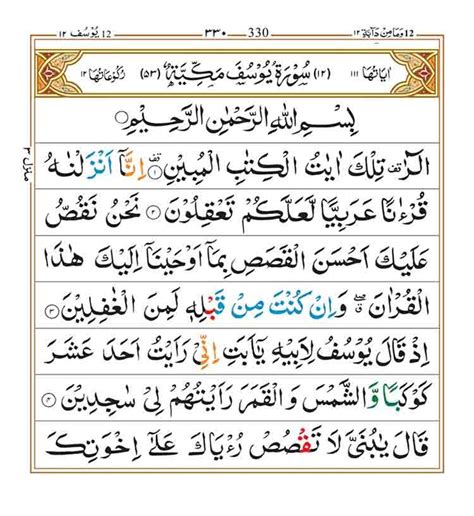 12 وَمَا مِنْ دَآبَّةٍ ١٢ ٣٣٠ 330 12 يُوْسُف ١٢
اٰيَاتُهَا ١١١ (١٢) سُوْرَةُ يُوْسُفَ مَكِّيَّةٌ (٥٣) رُكُوْعَاتُهَا ١٢
بِسْمِ اللهِ الرَّحْمٰنِ الرَّحِيْمِ
الٓرٰ تِلْكَ اٰيٰتُ الْكِتٰبِ الْمُبِيْنِ ١ اِنَّآ اَنْزَلْنٰهُ
منزل ٣
قُرْءٰنًا عَرَبِيًّا لَّعَلَّكُمْ تَعْقِلُوْنَ ٢ نَحْنُ نَقُصُّ
عَلَيْكَ اَحْسَنَ الْقَصَصِ بِمَآ اَوْحَيْنَآ اِلَيْكَ هٰذَا
الْقُرْاٰنَ وَاِنْ كُنْتَ مِنْ قَبْلِهٖ لَمِنَ الْغٰفِلِيْنَ ٣
اِذْ قَالَ يُوْسُفُ لِاَبِيْهِ يٰٓاَبَتِ اِنِّيْ رَاَيْتُ اَحَدَ عَشَرَ
كَوْكَبًا وَّالشَّمْسَ وَالْقَمَرَ رَاَيْتُهُمْ لِيْ سٰجِدِيْنَ ٤
قَالَ يٰبُنَيَّ لَا تَقْصُصْ رُءْيَاكَ عَلٰٓى اِخْوَتِكَ